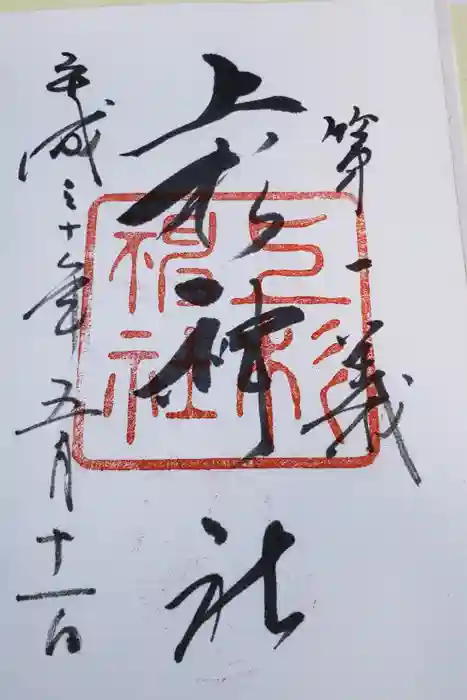 第一義
上杉神社
上杉神社
平成三十年五月十一日